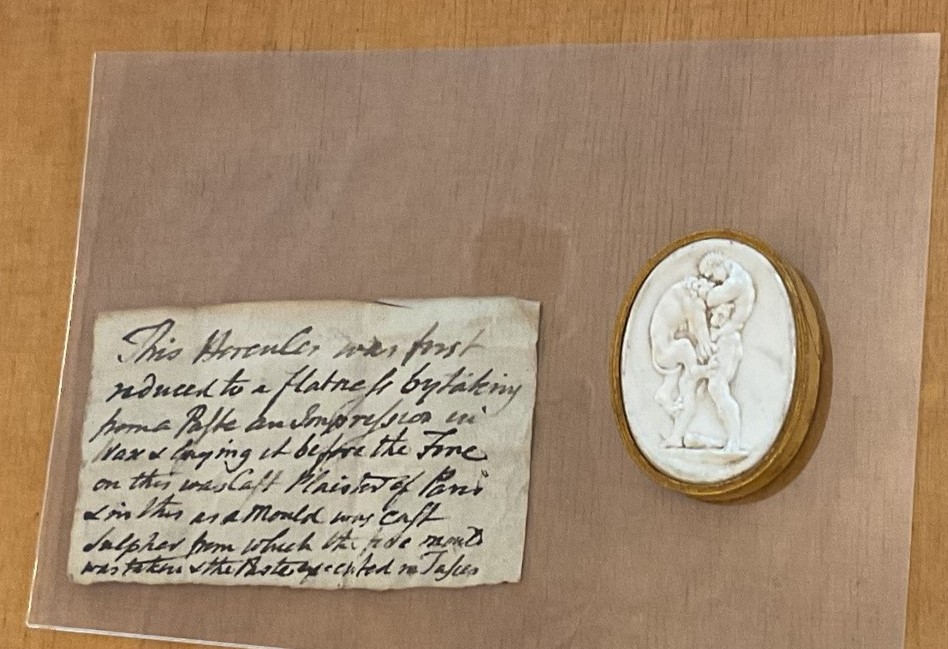 This Hercules was first
reduced to a flatness by taking
from a Paste an Impression in
Wax & laying it before the Fire
on this was Cast Plaister of Paris
& in this as a Mould was cast
Sulpher from which the mould
was taken & the Paste executed in